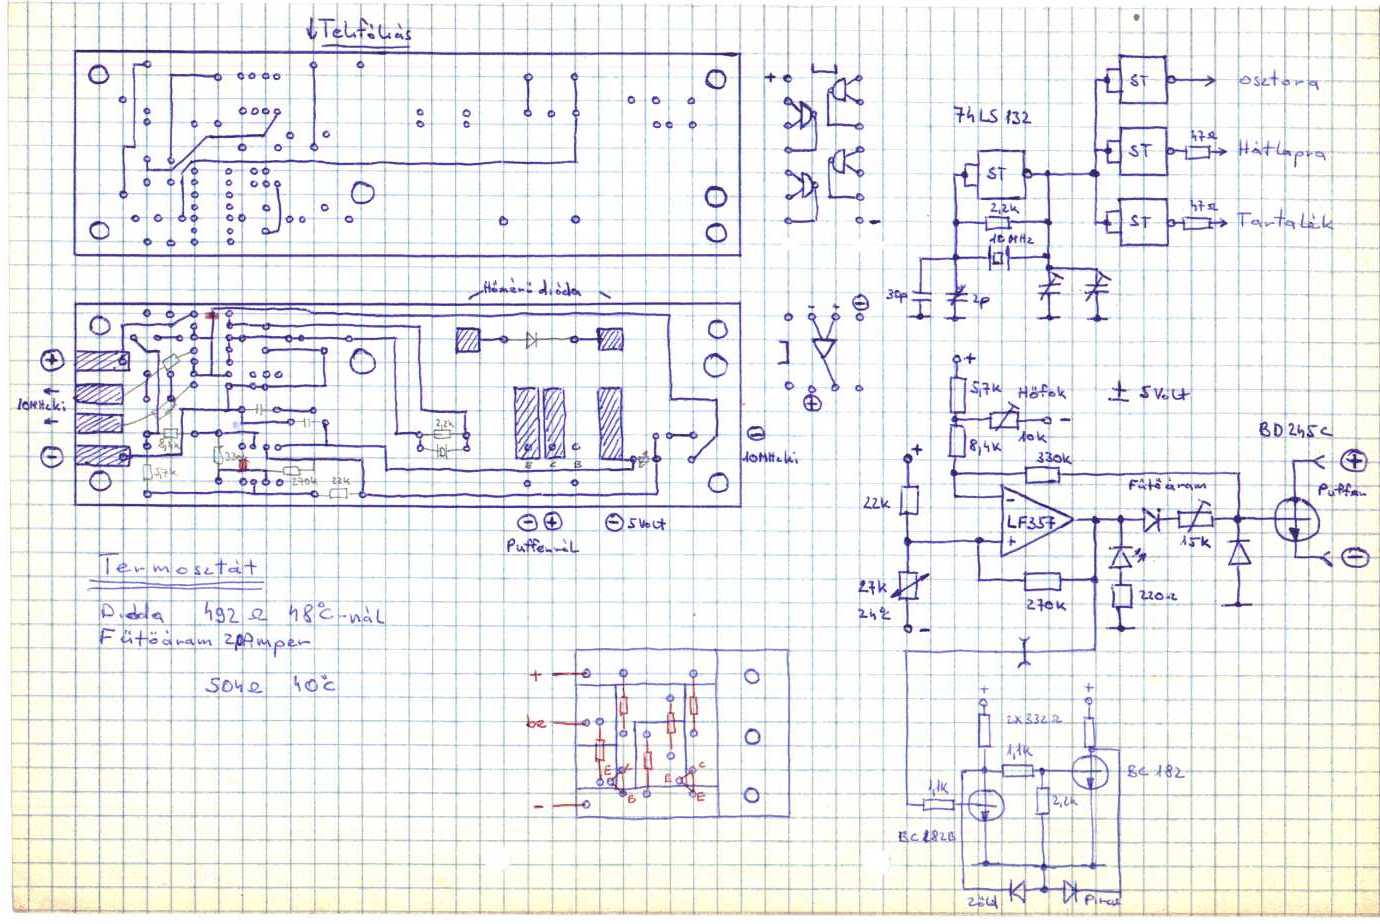 ↓ Telifóliás
+
-
74LS132
ST
ST
ST
ST
osztóra
47Ω
Hátlapra
47Ω
Tartalék
2,2k
10MHz
30p
2p
Hőmérő dióda
+
10MHz ki
-
8,4k
5,7k
330k
270k
22k
2,2k
E C B
-
10MHz ki
- +
- 5Volt
Puffernál
-
+
+
5,7k
Hőfok
-
10k
8,4k
± 5Volt
BD245C
+
22k
330k
Fűtőáram
-
+
LF357
15k
+
-
27k
24°C
-
270k
220Ω
Termosztát
Dióda 492Ω 48°C-nál
Fűtőáram 2Amper
504Ω 40°C
+
be
-
E
C
B
E
C
E
+
+
2x332Ω
1,1k
1,1k
2,2k
BC182
BC182B
Zöld
Piros